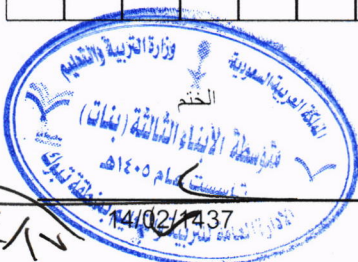 المملكة العربية السعودية
وزارة التربية والتعليم
الختم
متوسطة الأبناء الثالثة (بنات)
تأسست عام ١٤٠٥هـ
الإدارة العامة للتربية والتعليم بمنطقة تبوك
14/02/1437